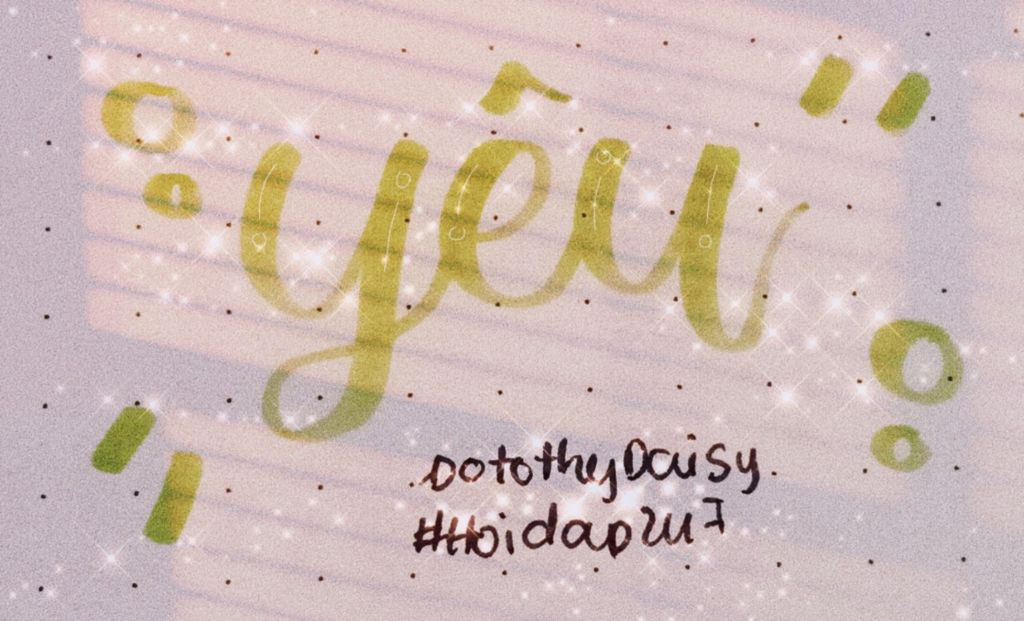 yêu
DotothyDaisy
#Hoidap247